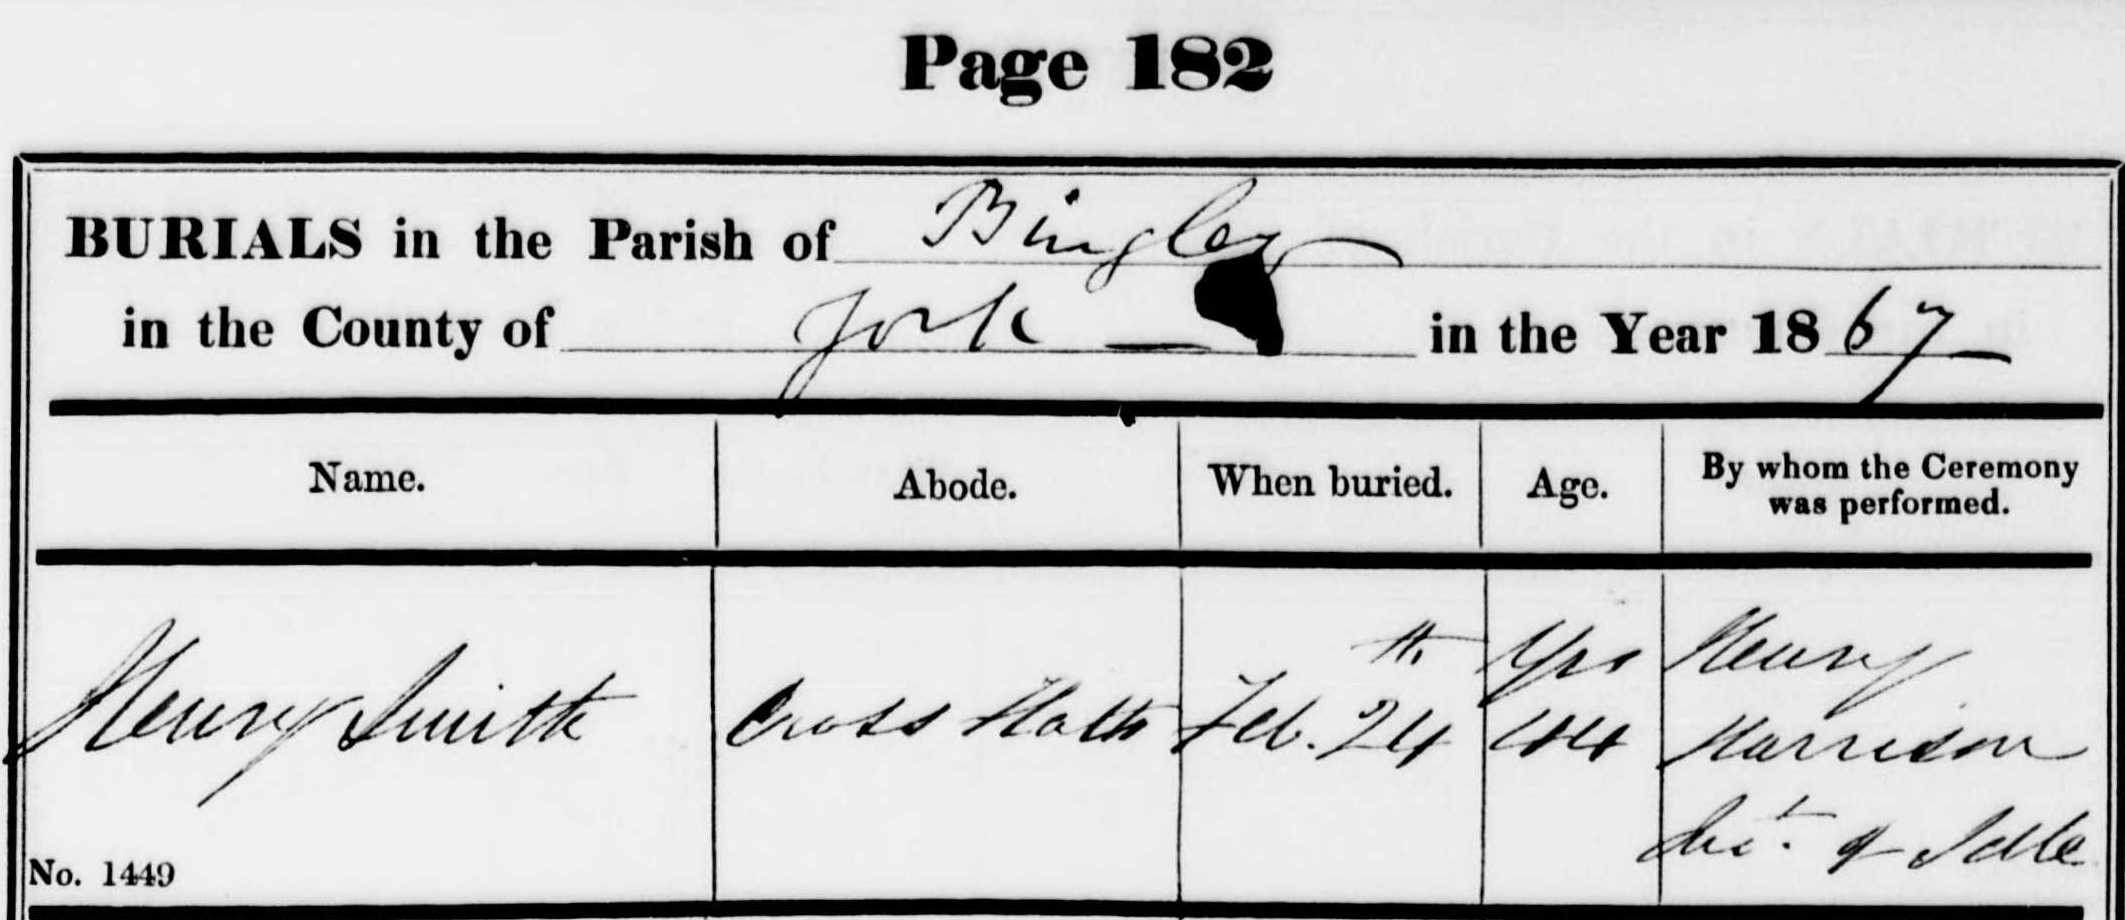 Page 182
BURIALS in the Parish of Bingley
in the County of York — in the Year 1867
Name. Abode. When buried. Age. By whom the Ceremony was performed.
Henry Smith Cross Flatts Feb. 24th Yrs 44 Henry
Harrison
Inct. of Idle
No. 1449